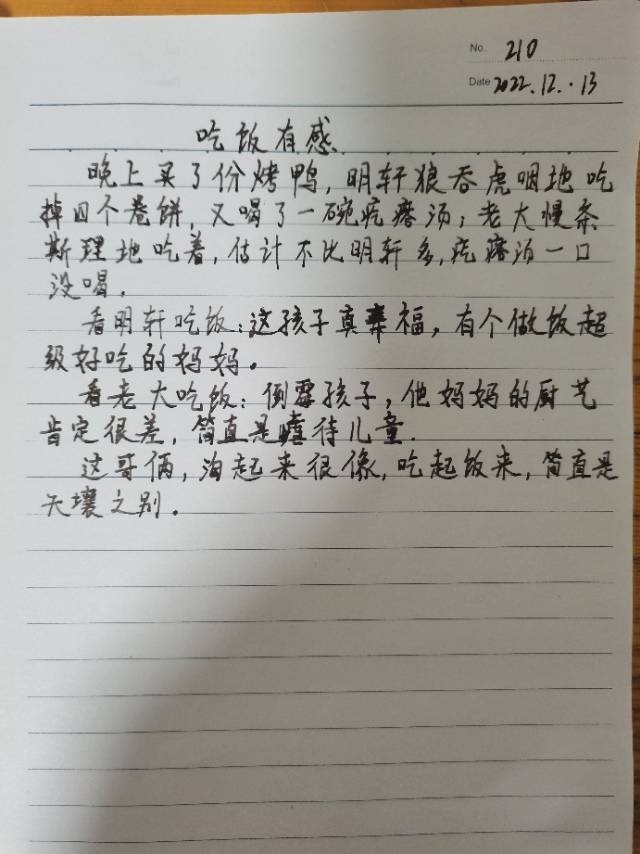 No. 210
Date 2022.12.13
吃饭有感
晚上买了份烤鸭，明轩狼吞虎咽地吃
掉四个卷饼，又喝了一碗疙瘩汤；老大慢条
斯理地吃着，估计不比明轩多，疙瘩汤一口
没喝。
看明轩吃饭：这孩子真幸福，有个做饭超
级好吃的妈妈。
看老大吃饭：倒霉孩子，他妈妈的厨艺
肯定很差，简直是虐待儿童.
这哥俩，淘起来很像，吃起饭来，简直是
天壤之别。